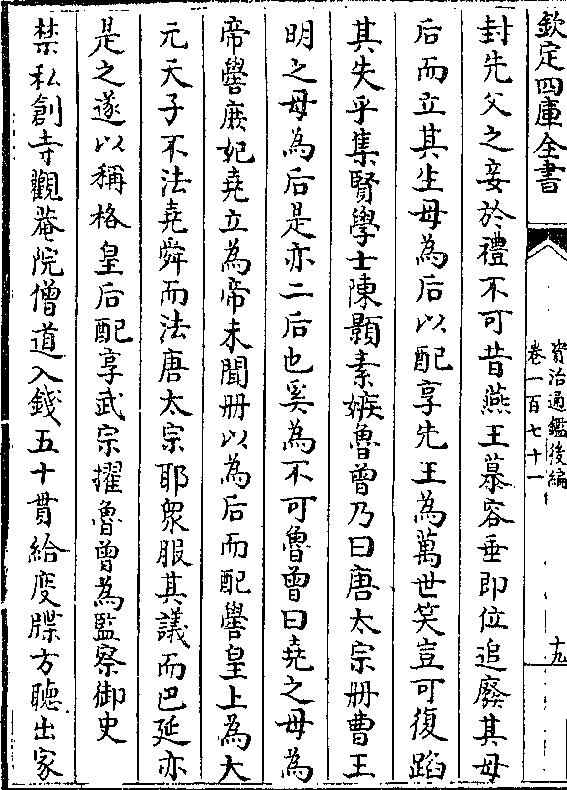 欽定四庫全書
資治通鑑後編
卷一百七十一
十九
封先父之妾於禮不可昔燕王慕容垂即位追廢其母
后而立其生母為后以配享先王為萬世笑豈可復蹈
其失乎集賢學士陳顥素嫉魯曾乃曰唐太宗册曹王
明之母為后是亦二后也奚為不可魯曾曰堯之母為
帝嚳庶妃堯立為帝未聞册以為后而配嚳皇上為大
元天子不法堯舜而法唐太宗耶衆服其議而巴延亦
是之遂以稱格皇后配享武宗擢魯曾為監察御史
禁私創寺觀菴院僧道入錢五十貫給度牒方聽出家